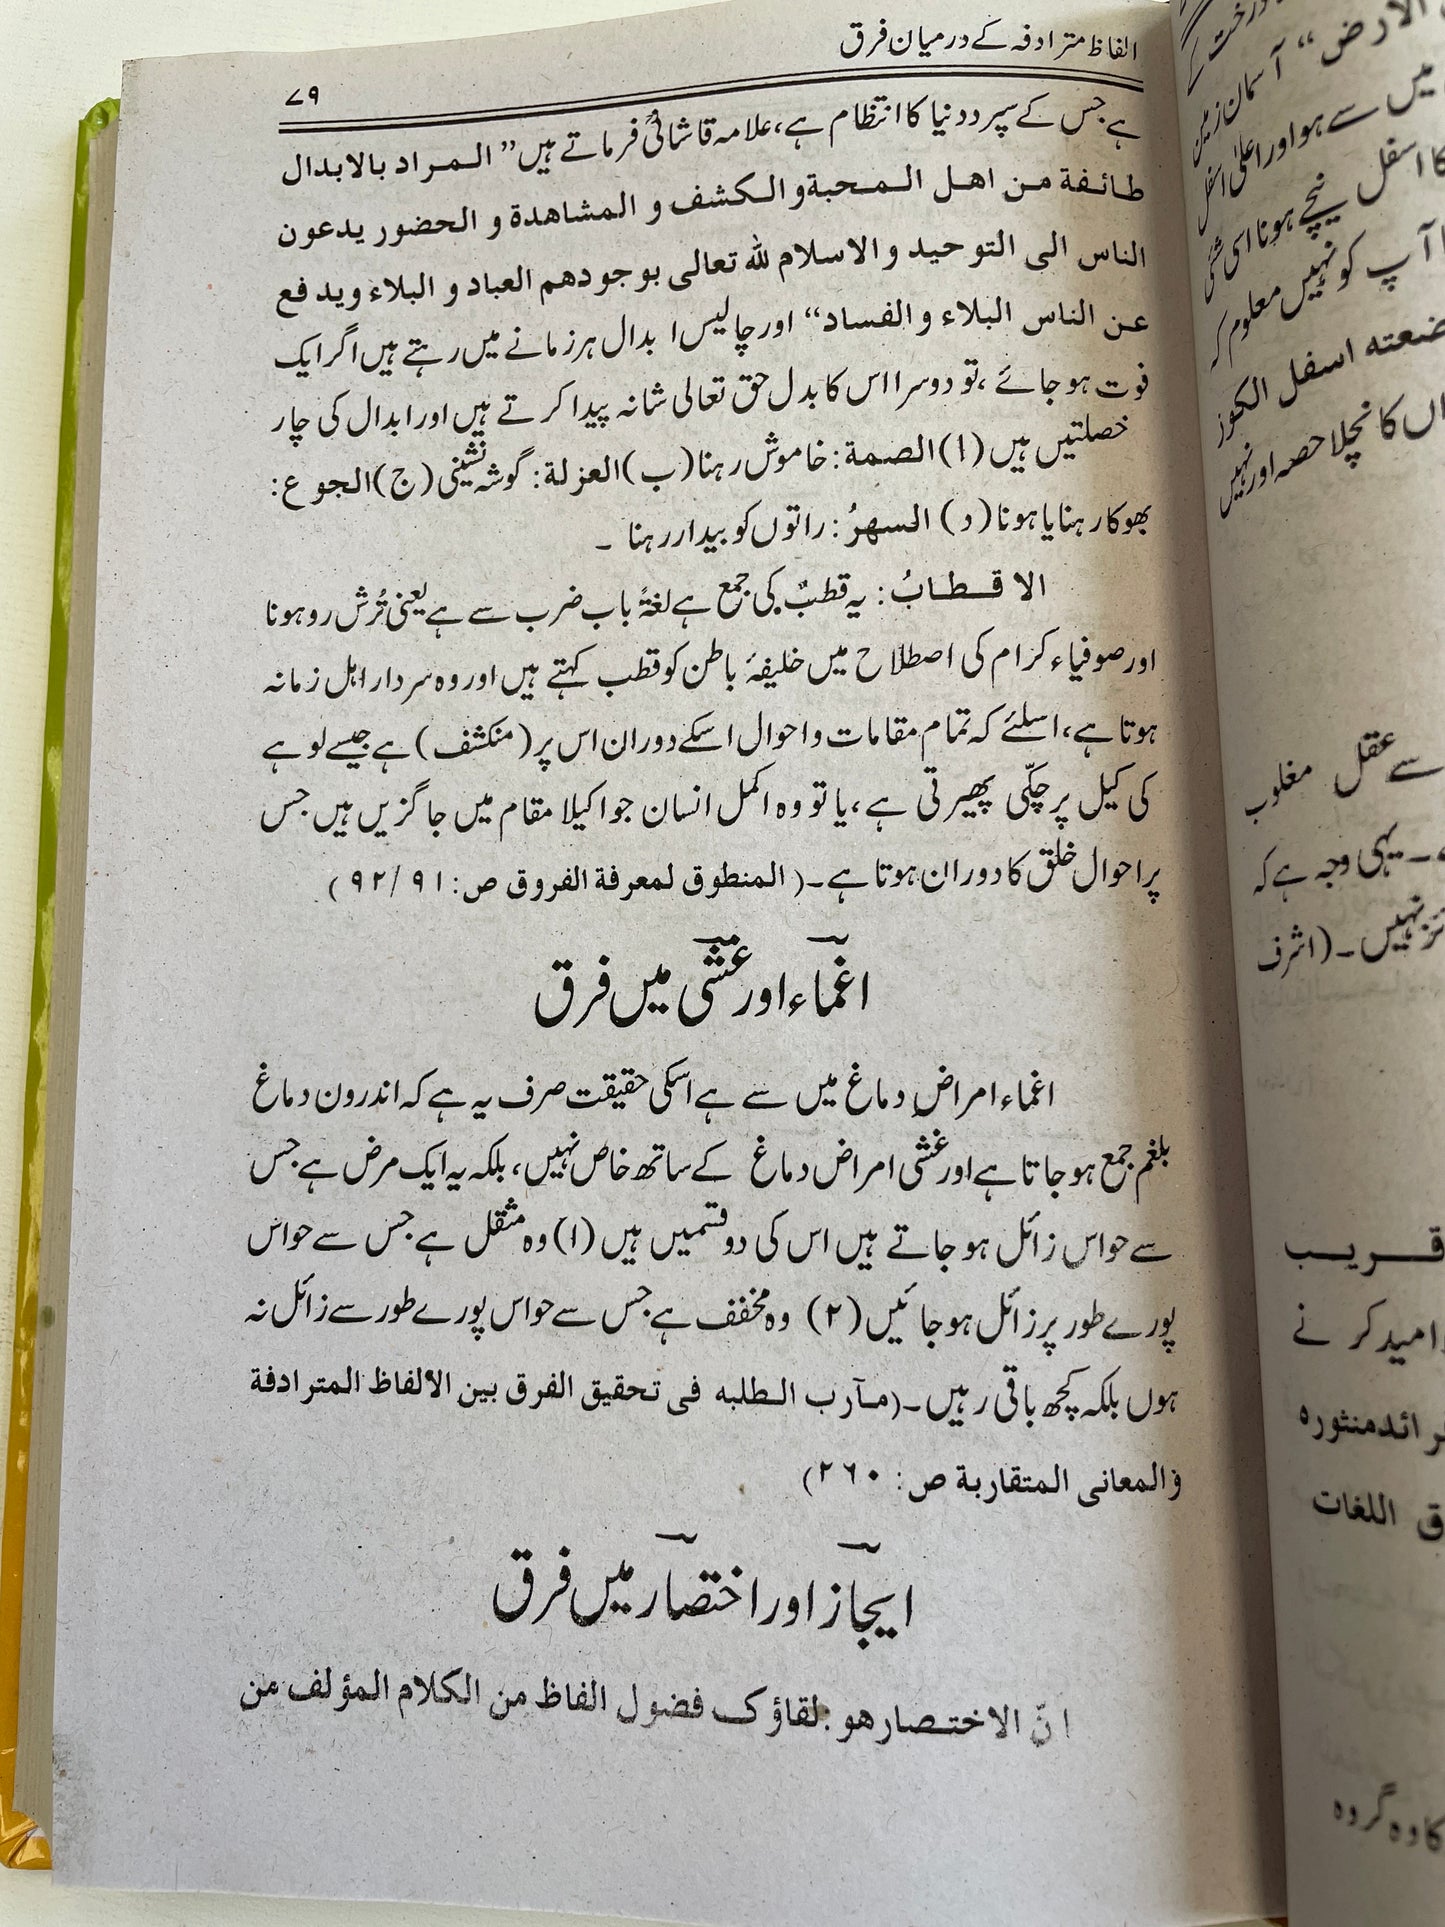 الفاظ مترادفہ کے درمیان فرق
۷۹
ہے جس کے سپرد دنیا کا انتظام ہے، علامہ قاشانیؒ فرماتے ہیں” المراد بالابدال
طائفة من اهل المحبة و الكشف و المشاهدة و الحضور يدعون
الناس الى التوحيد و الاسلام لله تعالى بوجودهم العباد و البلاء ويدفع
عن الناس البلاء و الفساد“ اور چالیس ابدال ہر زمانے میں رہتے ہیں اگر ایک
فوت ہو جائے، تو دوسرا اس کا بدل حق تعالی شانہ پیدا کرتے ہیں اور ابدال کی چار
خصلتیں ہیں (ا) الصمة: خاموش رہنا (ب) العزلة: گوشہ نشینی (ج) الجوع:
بھوکا رہنا یا ہونا (د) السهرُ: راتوں کو بیدار رہنا ۔
الاقطابُ: یہ قطبٌ کی جمع ہے لغۃً باب ضرب سے ہے یعنی تُرش رو ہونا
اور صوفیاء کرام کی اصطلاح میں خلیفۂ باطن کو قطب کہتے ہیں اور وہ سردار اہل زمانہ
ہوتا ہے، اسلئے کہ تمام مقامات و احوال اسکے دوران اس پر (منکشف) ہے جیسے لوہے
کی کیل پر چکّی پھیرتی ہے، یا تو وہ اکمل انسان جو اکیلا مقام میں جاگزیں ہیں جس
پر احوال خلق کا دوران ہوتا ہے۔ (المنطوق لمعرفة الفروق ص: ۹۱ /۹۲)
اغماء اور غشی میں فرق
اغماء امراضِ دماغ میں سے ہے اسکی حقیقت صرف یہ ہے کہ اندرون دماغ
بلغم جمع ہو جاتا ہے اور غشی امراض دماغ کے ساتھ خاص نہیں، بلکہ یہ ایک مرض ہے جس
سے حواس زائل ہو جاتے ہیں اس کی دو قسمیں ہیں (۱) وہ مثقل ہے جس سے حواس
پورے طور پر زائل ہو جائیں (۲) وہ مخفف ہے جس سے حواس پورے طور سے زائل نہ
ہوں بلکہ کچھ باقی رہیں۔ (مآرب الطلبه فى تحقيق الفرق بين الالفاظ المترادفة
والمعانى المتقاربة ص: ۲۶۰)
ایجاز اور اختصار میں فرق
انّ الاختصار هو :لقاؤك فضول الفاظ من الكلام المؤلف من
الارض“ آسمان زمین
میں سے ہو اور اعلیٰ اسفل
کا اسفل نیچے ہونا اسی شئی
آپ کو نہیں معلوم کہ
ضعته اسفل الكوز
اں کا نچلا حصہ اور نہیں
سے عقل مغلوب
۔ یہی وجہ ہے کہ
نہیں ۔ (اشرف
قریب
امید کرنے
رائد منثوره
ق اللغات
کا وہ گروہ